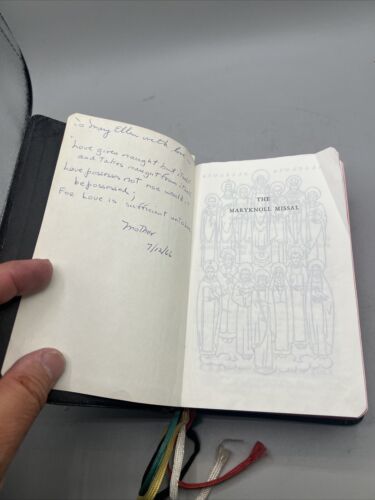 To Mary Ellen with love
"Love gives naught but itself
and takes naught from itself
Love possesses not nor would it
be possessed;
For Love is sufficient unto love
Mother
7/12/66
THE
MARYKNOLL MISSAL